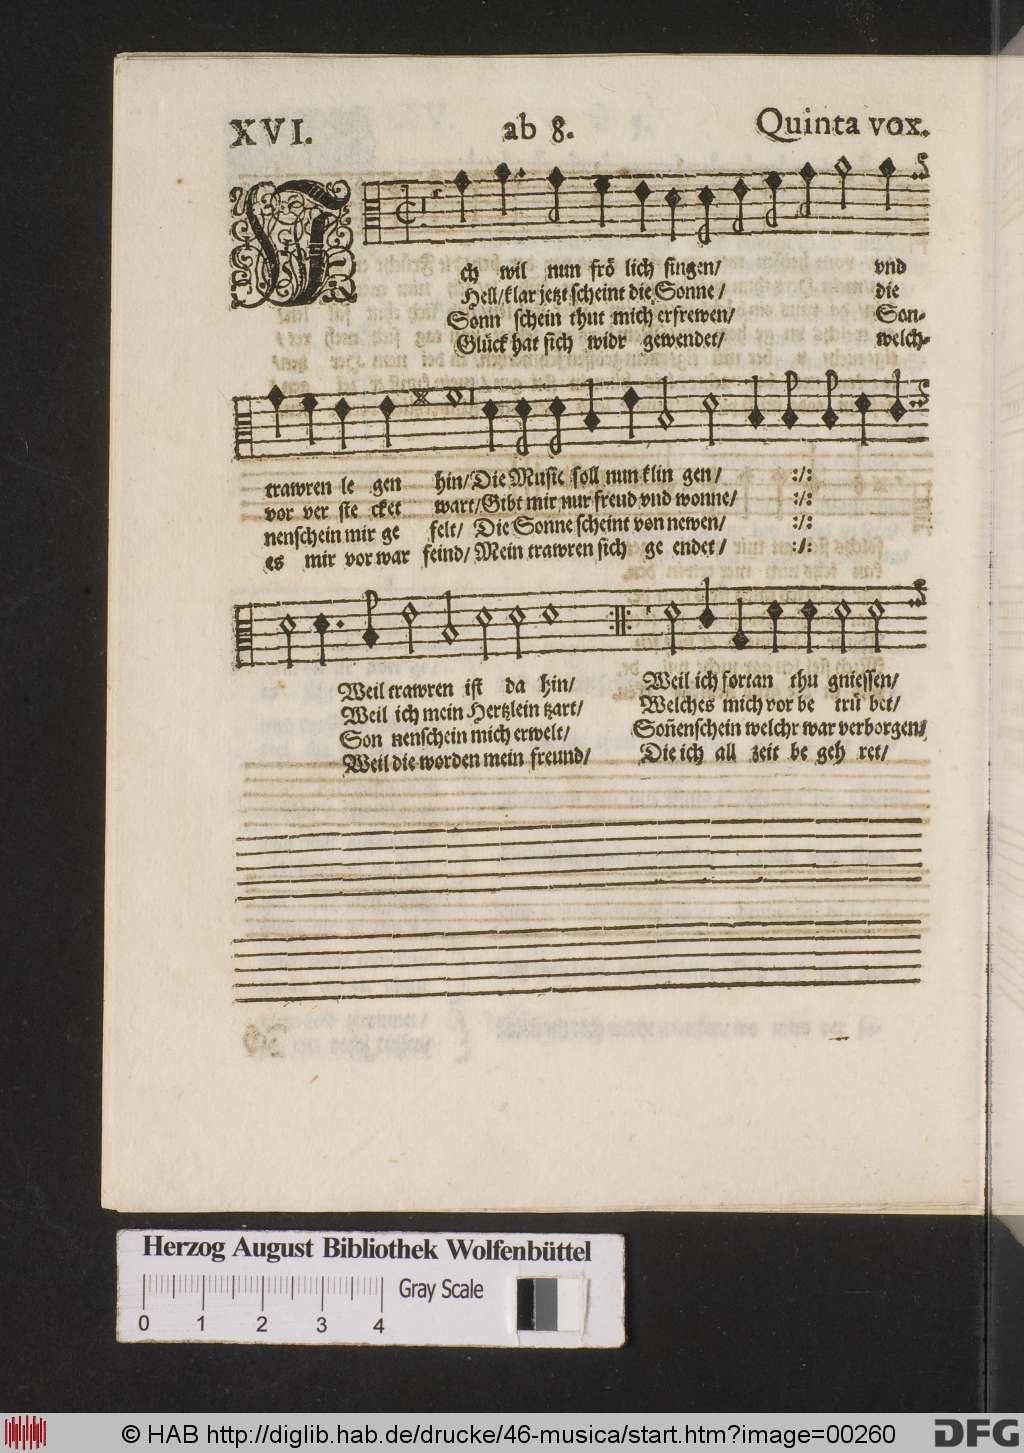 XVI. ab 8. Quinta vox.
Ich wil nun frö lich singen/ vnd
Hell/klar jetzt scheint die Sonne/ die
Sonn schein thut mich erfrewen/ Son-
Glück hat sich widr gewendet/ welch-
trawren le gen hin/Die Music soll nun klin gen/ :/:
vor ver ste cket wart/Gibt mir nur freud vnd wonne/ :/:
nenschein mir ge felt/ Die Sonne scheint von newen/ :/:
es mir vor war feind/Mein trawren sich ge endet/ :/:
Weil trawren ist da hin/ Weil ich fortan thu gniessen/
Weil ich mein Hertzlein tzart/ Welches mich vor be trü bet/
Son nenschein mich erwelt/ Soñenschein welchr war verborgen/
Weil die worden mein freund/ Die ich all zeit be geh ret/
Herzog August Bibliothek Wolfenbüttel
Gray Scale
0 1 2 3 4
© HAB http://diglib.hab.de/drucke/46-musica/start.htm?image=00260
DFG